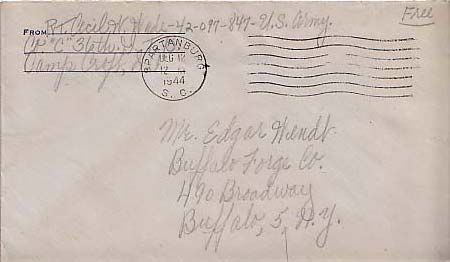 Free
FROM Pvt. Cecil W. Wade-42-097-847-U.S. Army.
Co "C" 36th
Camp Croft, S.C.
SPARTANBURG
DEC 12
12
1944
S. C.
Mr. Edgar Wendt
Buffalo Forge Co.
490 Broadway
Buffalo, 5, N.Y.